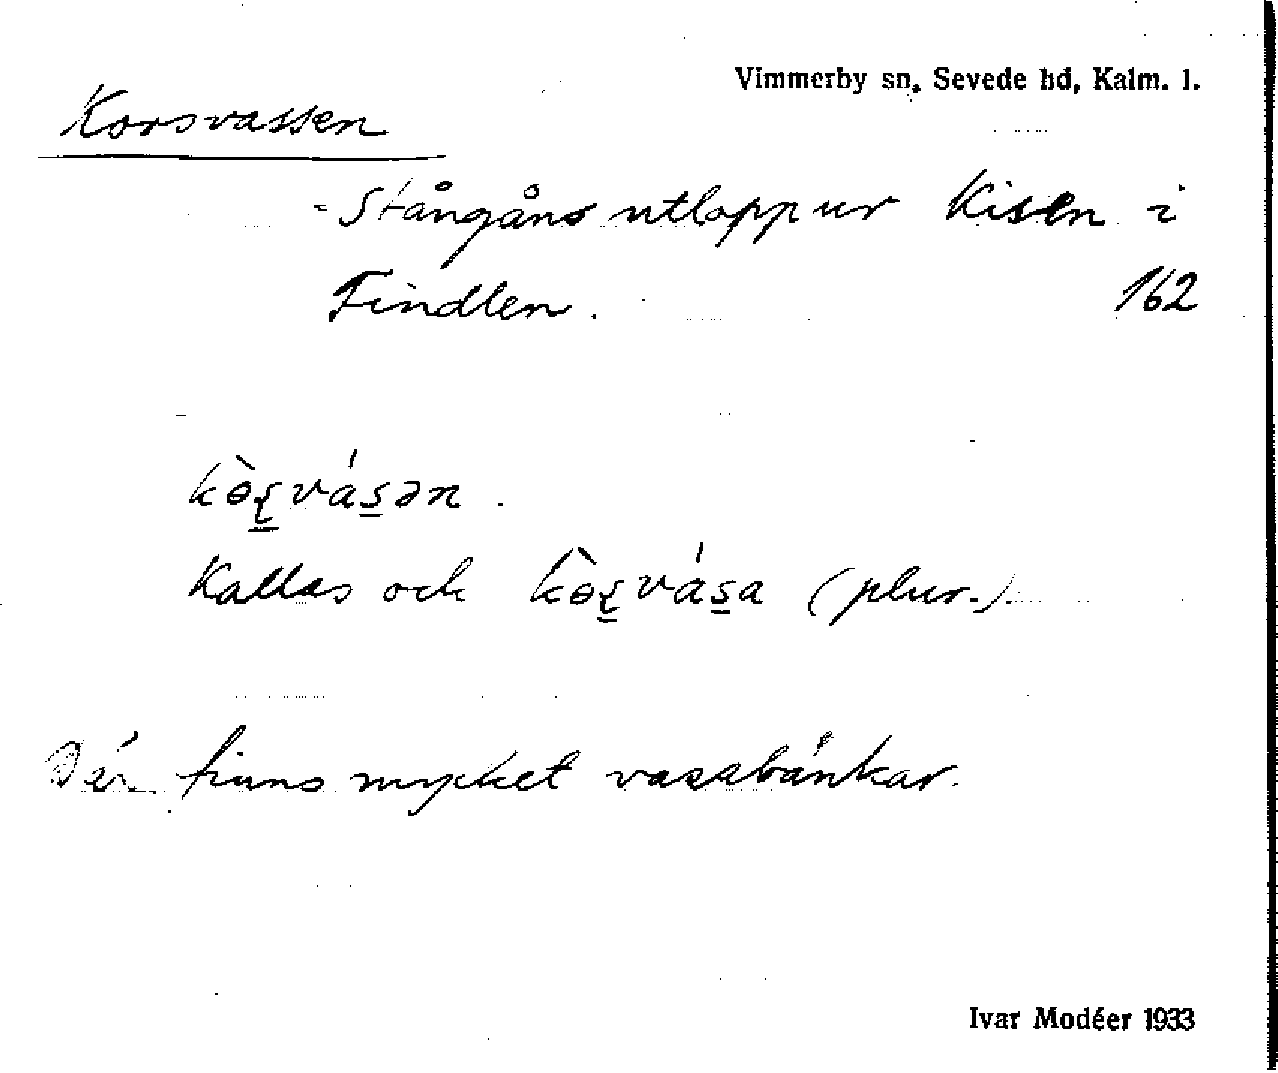 Vimmerby sn, Sevede hd, Kalm. l.
Korsvassen
= Stångåns utlopp ur Kisen i
Findlen. 162
kòʂvás̲ən.
Kallas och kòʂvás̲a (plur.).
Där finns mycket vassbänkar.
Ivar Modéer 1933